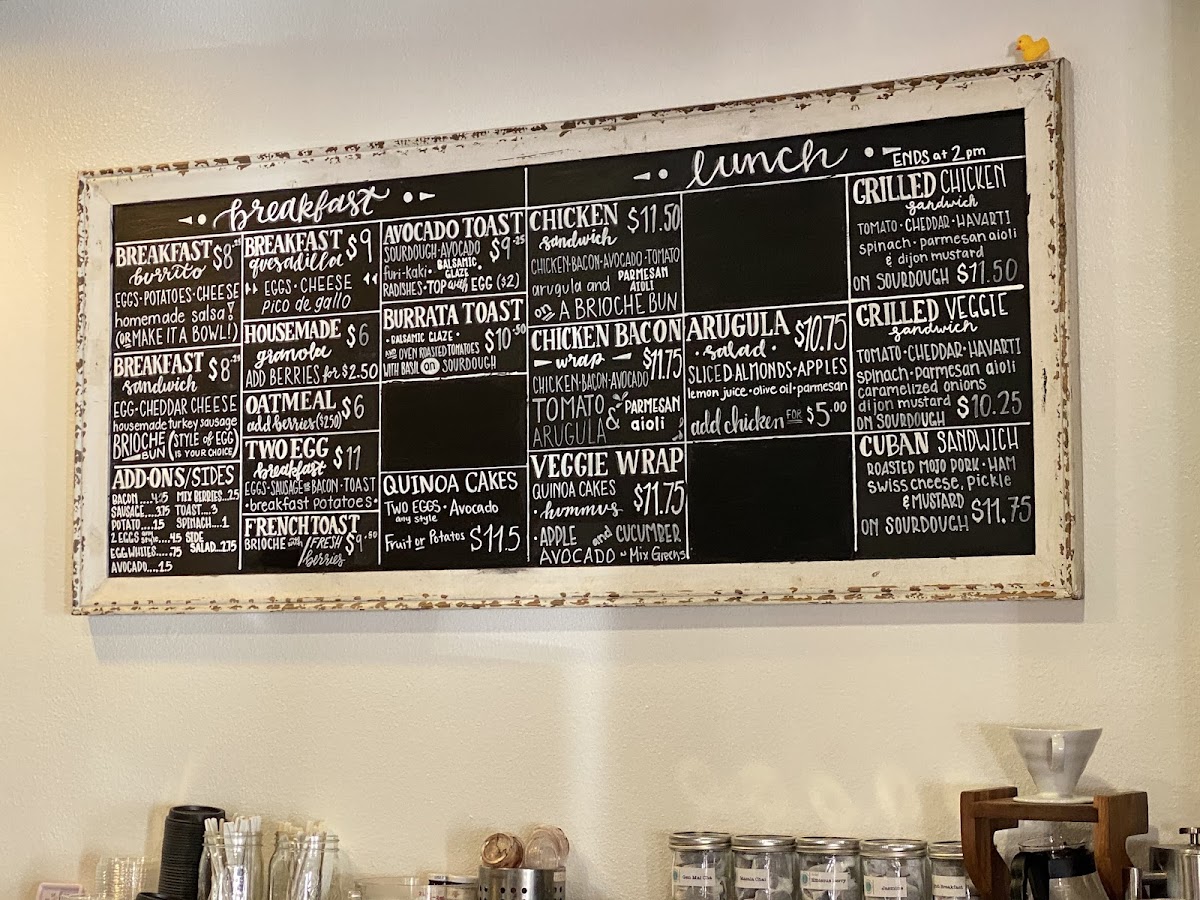 breakfast
BREAKFAST
burrito
EGGS · POTATOES · CHEESE
homemade salsa!
(OR MAKE IT A BOWL!)
BREAKFAST
sandwich
EGG · CHEDDAR CHEESE
homemade turkey sausage
BRIOCHE BUN (STYLE of EGG IS YOUR CHOICE)
ADD-ONS/SIDES
BACON....4.25 MIX BERRIES..2.5
SAUSAGE...3.75 TOAST...3
POTATO....1.5 SPINACH...1
2 EGGS any style....4.5 SIDE
EGG WHITES....75 SALAD..2.75
AVOCADO....1.5
BREAKFAST $9
quesadilla
EGGS · CHEESE
pico de gallo
HOUSEMADE $6
granola
ADD BERRIES for $2.50
OATMEAL $6
add berries ($2.50)
TWO EGG $11
breakfast
EGGS · SAUSAGE OR BACON · TOAST
· breakfast potatoes ·
FRENCH TOAST
BRIOCHE with FRESH $9.50
berries
AVOCADO TOAST
SOURDOUGH · AVOCADO $9.25
furi-kaki · BALSAMIC GLAZE ·
RADISHES · TOP with EGG ($2)
BURRATA TOAST
· BALSAMIC GLAZE · $10.50
AND OVEN ROASTED TOMATOES
WITH BASIL on SOURDOUGH
QUINOA CAKES
TWO EGGS · Avocado
any style
Fruit or Potatos $11.5
lunch
ENDS at 2pm
CHICKEN $11.50
sandwich
CHICKEN · BACON · AVOCADO · TOMATO
arugula and PARMESAN AIOLI
on A BRIOCHE BUN
CHICKEN BACON
wrap $11.75
CHICKEN · BACON · AVOCADO
TOMATO & PARMESAN
ARUGULA aioli
VEGGIE WRAP
QUINOA CAKES $11.75
· hummus
· APPLE and CUCUMBER
AVOCADO ~ Mix Greens
ARUGULA $10.75
· salad ·
SLICED ALMONDS · APPLES
lemon juice · olive oil · parmesan
add chicken FOR $5.00
GRILLED CHICKEN
sandwich
TOMATO · CHEDDAR · HAVARTI
spinach · parmesan aioli
& dijon mustard
ON SOURDOUGH $11.50
GRILLED VEGGIE
sandwich
TOMATO · CHEDDAR · HAVARTI
spinach · parmesan aioli
caramelized onions
dijon mustard
ON SOURDOUGH $10.25
CUBAN SANDWICH
ROASTED MOJO PORK · HAM
swiss cheese, pickle
& MUSTARD
ON SOURDOUGH $11.75
Gen Mai Cha
Jasmine